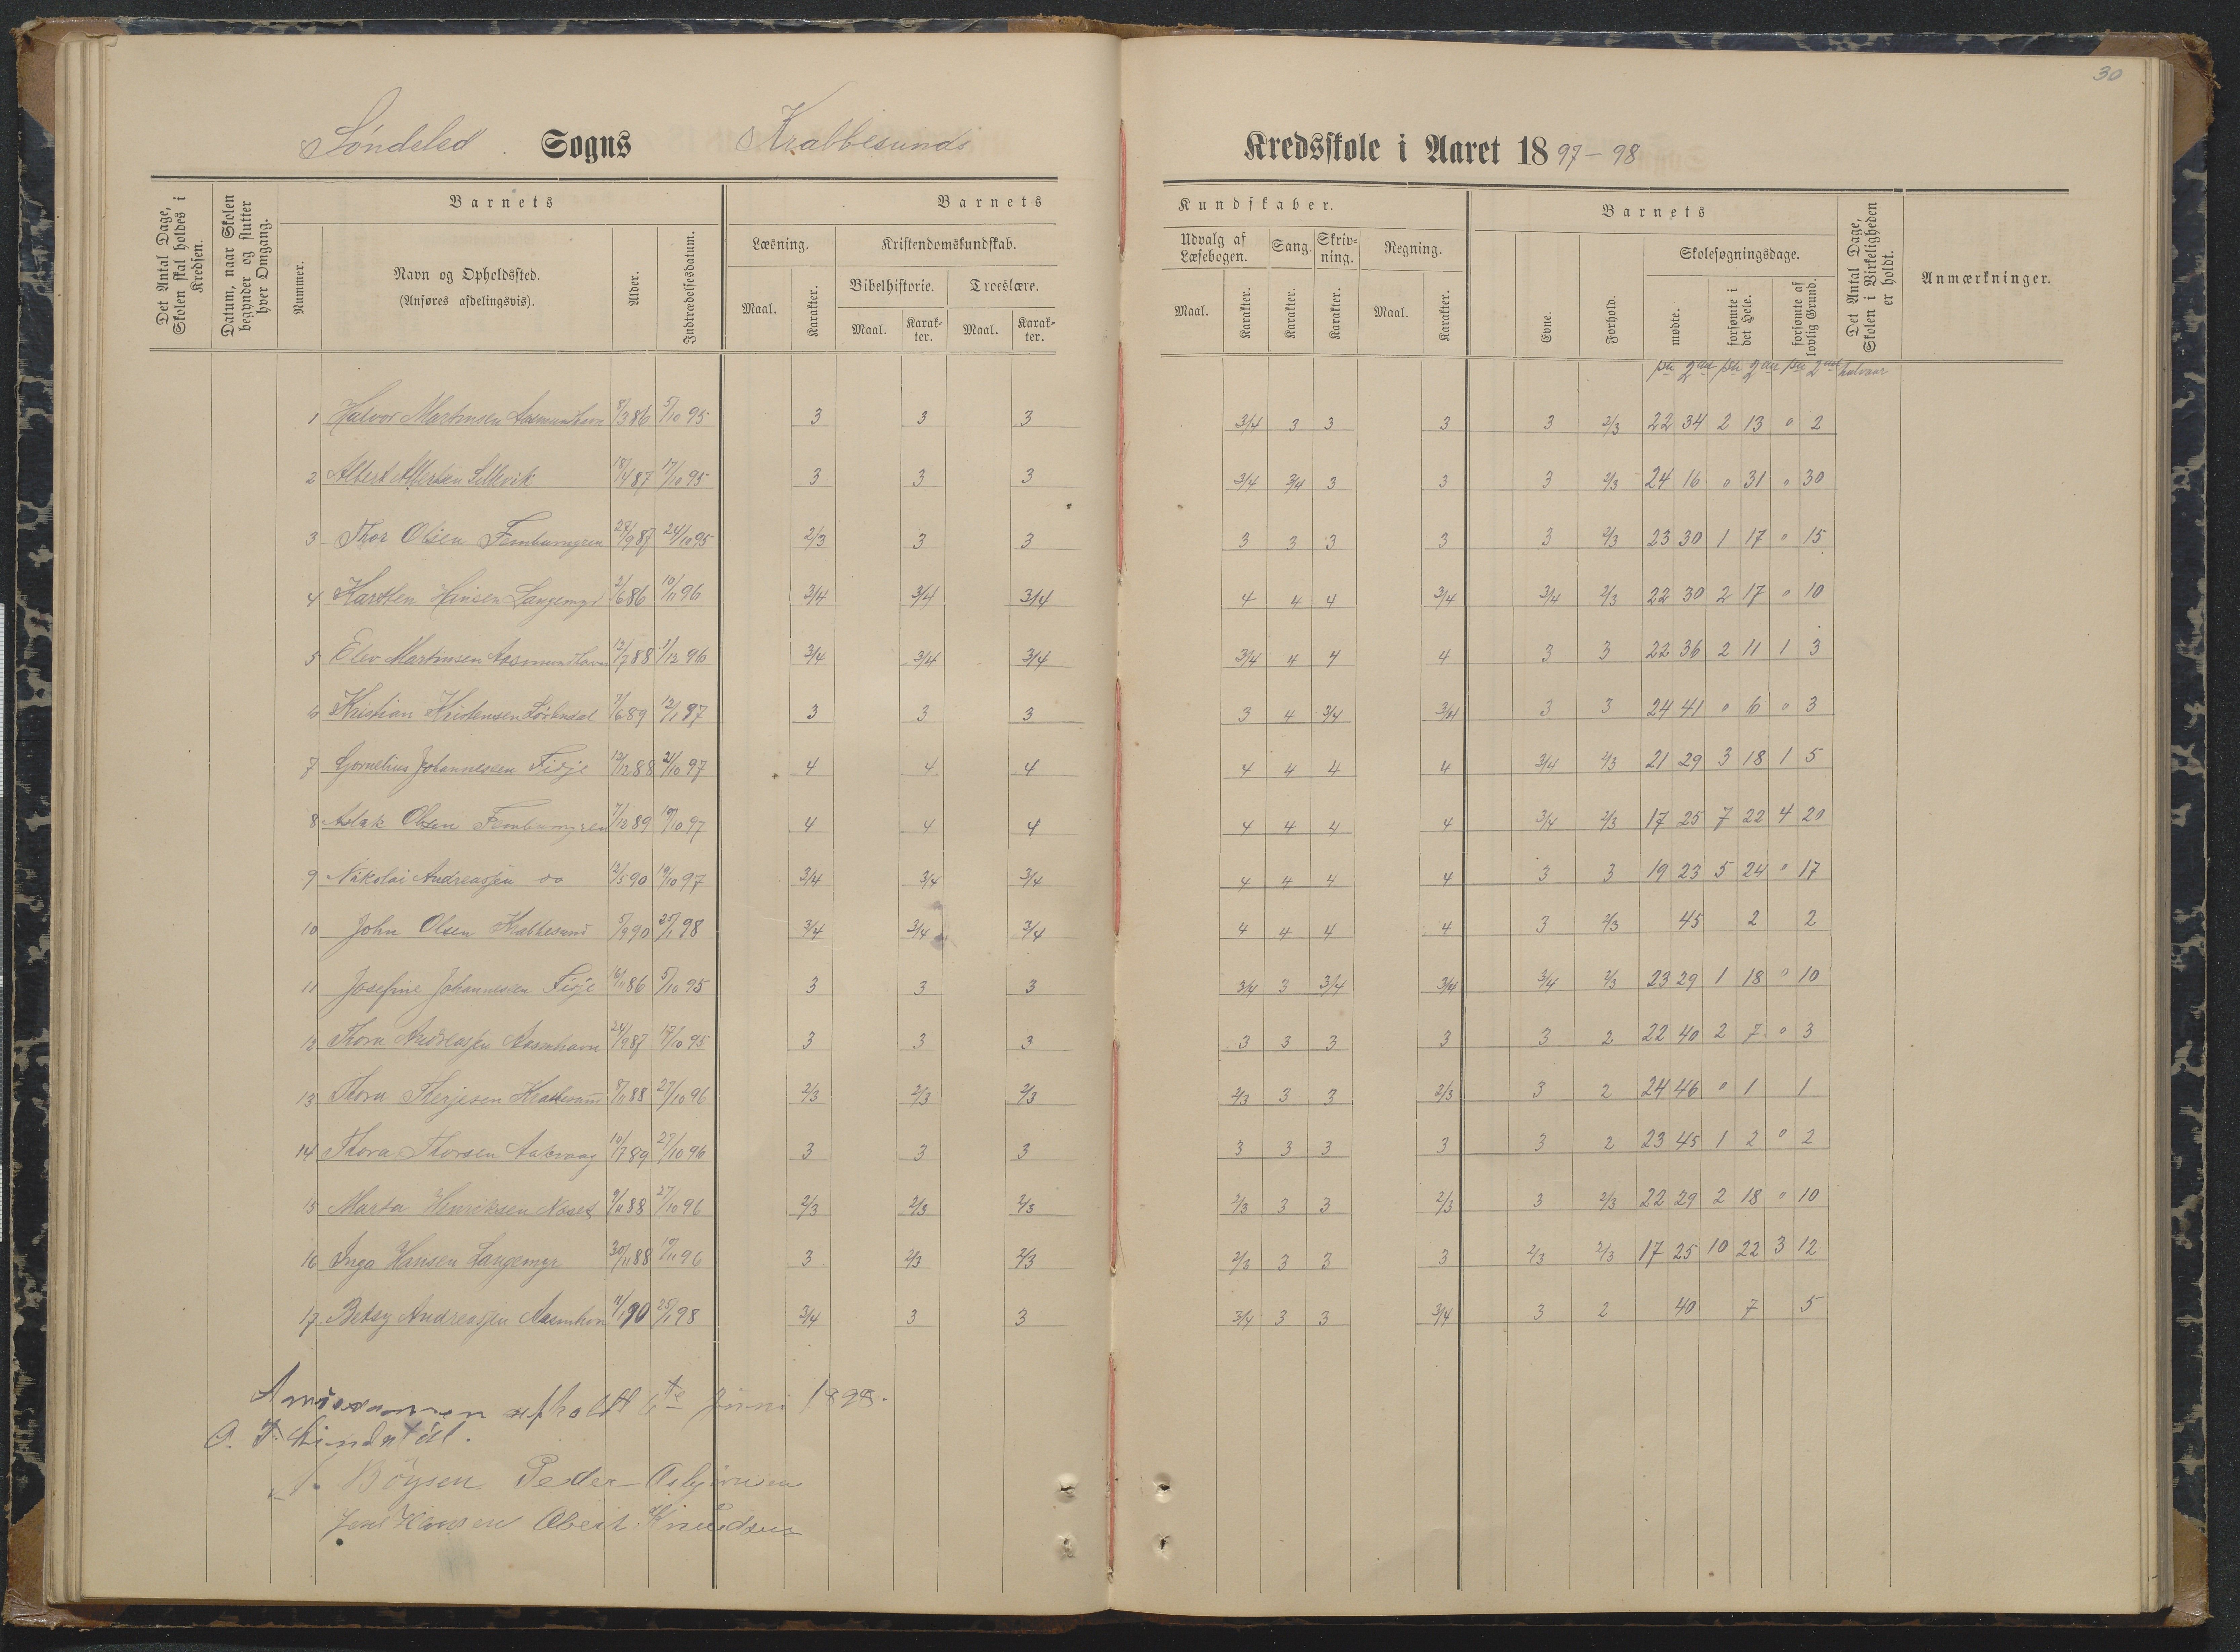 30
Søndeled Sogns Krabbesunds Kredsskole i Aaret 1897-98
Det Antal Dage, Skolen skal holdes i Kredsen.
Datum, naar Skolen begynder og slutter hver Omgang.
Barnets
Nummer.
Navn og Opholdssted.
(Anføres afdelingsvis).
Alder.
Indtrædelsesdatum.
Barnets Kundskaber.
Læsning. Kristendomskundskab. Udvalg af Læsebogen. Sang. Skrivning. Regning.
Bibelhistorie. Troeslære.
Maal. Karakter. Maal. Karakter. Maal. Karakter. Maal. Karakter. Karakter. Karakter. Maal. Karakter.
Barnets
Evne. Forhold. Skolesøgningsdage.
mødte. forsømte i det Hele. forsømte af lovlig Grund.
Det Antal Dage, Skolen i Virkeligheden er holdt.
Anmærkninger.
halvaar
1 Halvor Martinsen Aasmundhavn 8/3 86 5/10 95 3 3 3 3/4 3 3 3 3 2/3 22 34 2 13 " 2
2 Albert Albertsen Lillevik 18/4 87 17/10 95 3 3 3 3/4 3/4 3 3 3 2/3 24 16 " 31 " 30
3 Thor Olsen 27/9 87 24/10 95 2/3 3 3 3 3 3 3 3 2/3 23 30 1 17 " 15
4 Karsten Hansen Langemyr 2/6 86 10/11 96 3/4 3/4 3/4 4 4 4 3/4 3/4 2/3 22 30 2 17 " 10
5 Elev Martinsen Aasmundhavn 12/7 88 1/12 96 3/4 3/4 3/4 3/4 4 4 4 3 3 22 36 2 11 1 3
6 Kristian Kristensen 7/6 89 12/1 97 3 3 3 3 4 3/4 3/4 3 3 24 41 " 6 " 3
7 Cornelius Johannessen Fisje 12/12 88 21/10 97 4 4 4 4 4 4 4 3/4 2/3 21 29 3 18 1 5
8 Aslak Olsen 7/12 89 19/10 97 4 4 4 4 4 4 4 3/4 2/3 17 25 7 22 4 20
9 Nikolai Andreassen do 12/5 90 19/10 97 3/4 3/4 3/4 4 4 4 4 3 3 19 23 5 24 " 17
10 John Olsen Krabbesund 5/9 90 25/1 98 3/4 3/4 3/4 4 4 4 4 3 2/3 45 2 2
11 Josefine Johannessen Fisje 16/11 86 5/10 95 3 3 3 3/4 3 3/4 3/4 3/4 2/3 23 29 1 18 " 10
12 Thora Andreassen Aasmhavn 24/9 87 17/10 95 3 3 3 3 3 3 3 3 2 22 40 2 7 " 3
13 Thora Terjesen Krabbesund 8/11 88 27/10 96 2/3 2/3 2/3 2/3 3 3 2/3 3 2 24 46 " 1 1
14 Thora Thorsen Aasvaag 10/7 89 27/10 96 3 3 3 3 3 3 3 3 2 23 45 1 2 " 2
15 Marta Henriksen Næset 9/11 88 27/10 96 2/3 2/3 2/3 2/3 3 3 2/3 3 2/3 22 29 2 18 " 10
16 Inga Hansen Langemyr 30/11 88 17/11 96 3 2/3 2/3 2/3 3 3 3 2/3 2/3 17 25 10 22 3 12
17 Betsy Andreassen Aasmhavn 11/1 90 25/1 98 3/4 3 3 3/4 3 3 3/4 3 2 40 7 5
afholdt 6te Juni 1898.
O. T. Lindstöl.
Böysen Peder Asbjørnsen
Jens Hansen Obert Knudsen